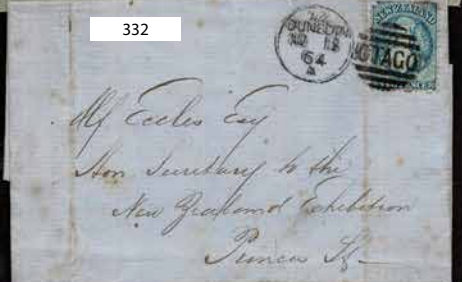 332
DUNEDIN
64
A
NEW ZEALAND
OTAGO
PENCE
Alf Eccles Esq
Hon Secretary to the
New Zealand Exhibition
Princes St